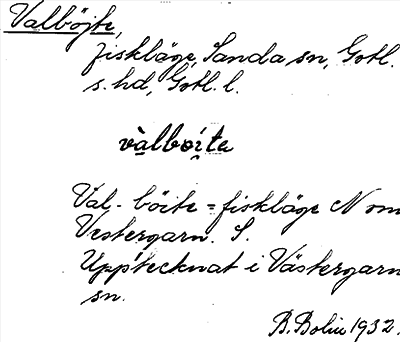 Valböjte,
fiskläge, Sanda sn, Gotl.
s. hd, Gotl. l.
valboite
Val-böite = fiskläge N om
Vestergarn. S.
Upptecknat i Västergarn
sn.
B. Bolin 1932.